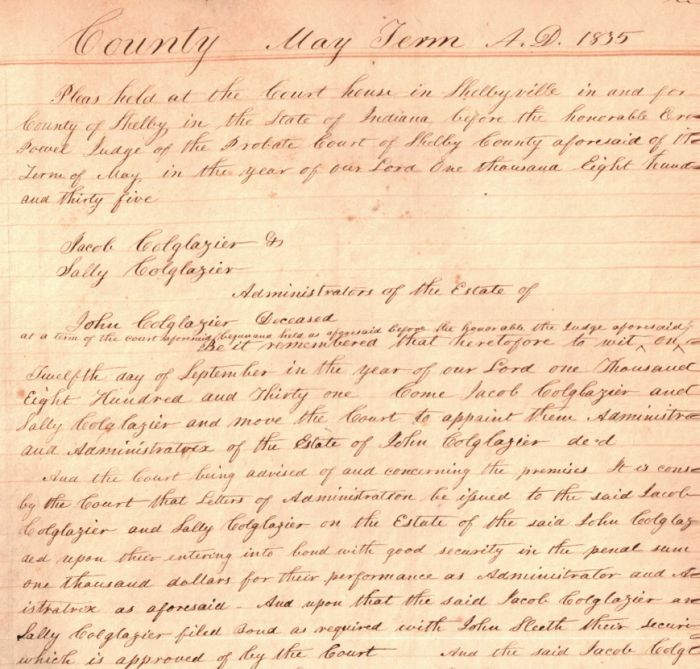 County May Term A.D. 1835
Pleas held at the Court house in Shelbyville in and for
County of Shelby in the State of Indiana before the honorable Ere
Powel Judge of the Probate Court of Shelby County aforesaid of th
Term of May in the year of our Lord One thousand Eight hund
and thirty five
Jacob Colglazier &
Sally Colglazier
Administrators of the Estate of
John Colglazier Deceased
at a term of the court aforesaid begun and held as aforesaid before the honorable the Judge aforesaid
Be it remembered that heretofore to wit ^ on ^
Twelfth day of September in the year of our Lord one Thousand
Eight Hundred and Thirty one Come Jacob Colglazier and
Sally Colglazier and move the Court to appaint them Administr
and Administratrix of the Estate of John Colglazier de-d
And the Court being advised of and concerning the premises It is cons
by the Court that Letters of Administration be issued to the said Jacob
Colglazier and Sally Colglazier on the Estate of the said John Colglaz
ded upon their entering into bond with good security in the penal sum
one thousand dollars for their performance as Administrator and A
istratrix as aforesaid - And upon that the said Jacob Colglazier an
Sally Colglazier filed Bond as required with John Sleeth their Securi
which is approved of by the Court And the said Jacob Colgl